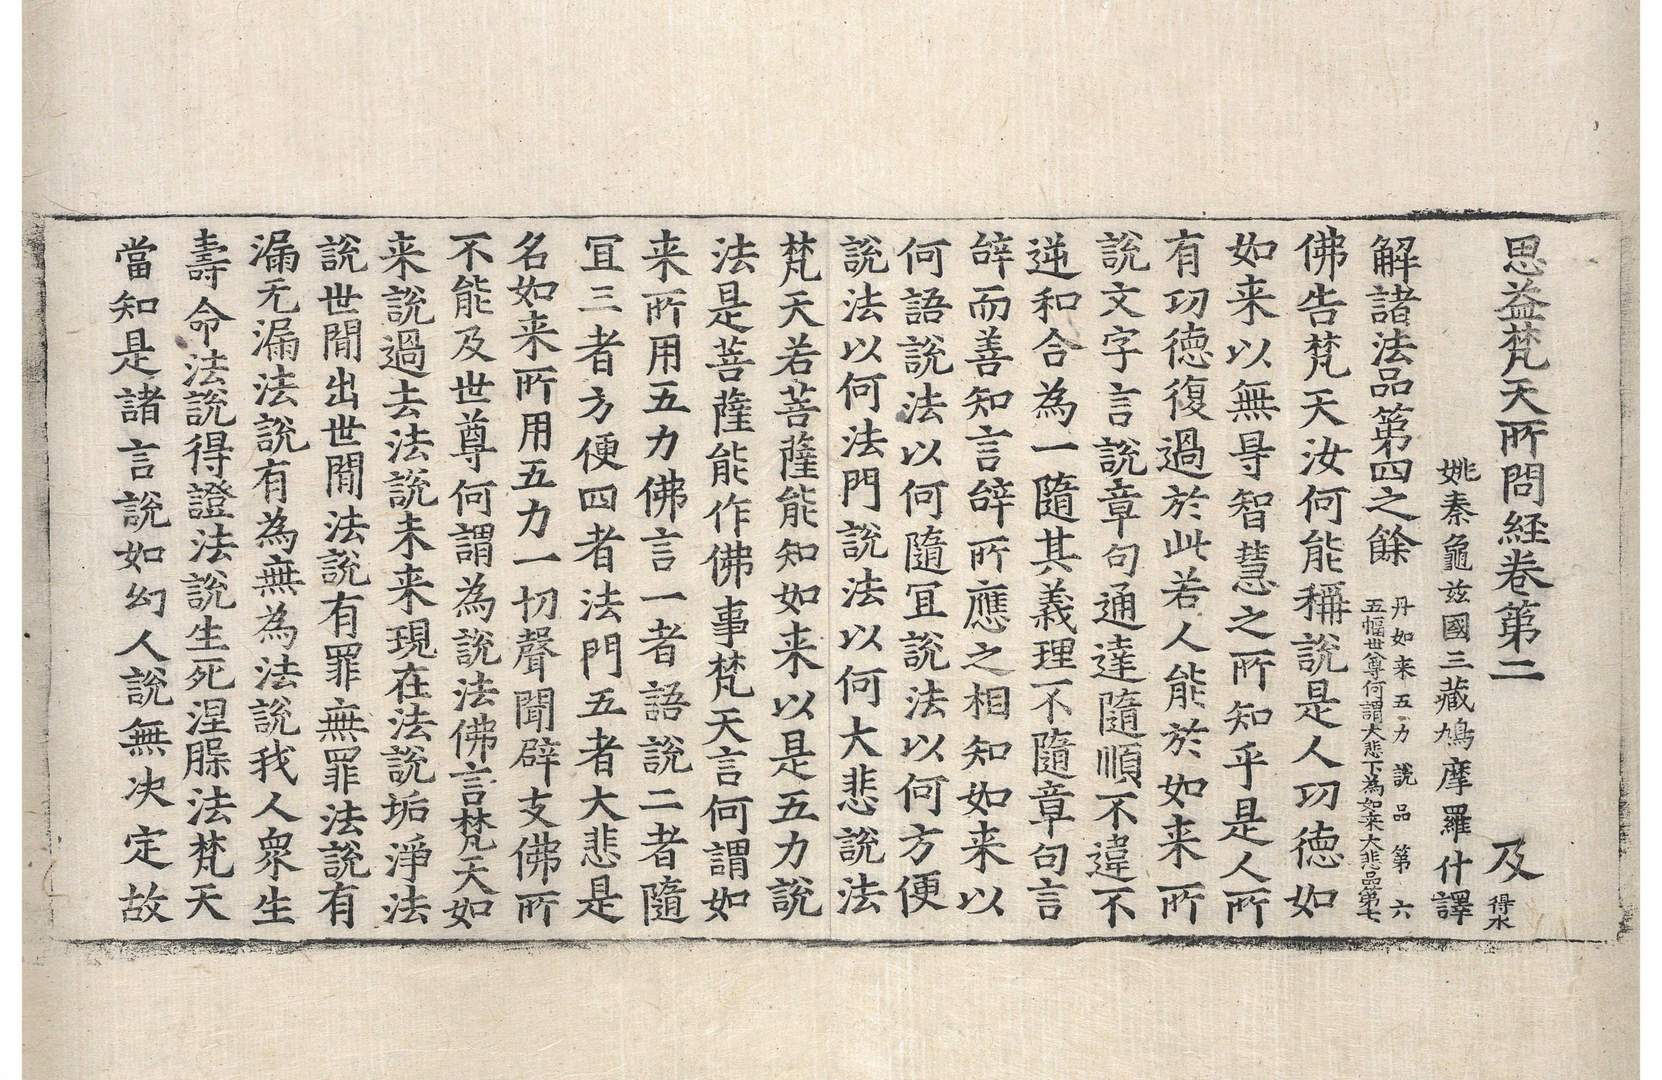 思益梵天所問経卷第二 及 得水
姚秦龜茲國三藏鳩摩羅什譯
解諸法品第四之餘 丹如来五力說品第六
五幅世尊何謂大悲下為如来大悲品第七
佛告梵天汝何能稱說是人功德如
如来以無㝵智慧之所知乎是人所
有功德復過於此若人能於如来所
說文字言說章句通達隨順不違不
逆和合為一隨其義理不隨章句言
辝而善知言辝所應之相知如来以
何語說法以何隨冝說法以何方便
說法以何法門說法以何大悲說法
梵天若菩薩能知如来以是五力說
法是菩薩能作佛事梵天言何謂如
来所用五力佛言一者語說二者隨
冝三者方便四者法門五者大悲是
名如来所用五力一切聲聞辟支佛所
不能及世尊何謂為說法佛言梵天如
来說過去法說未来現在法說垢淨法
說世閒出世閒法說有罪無罪法說有
漏无漏法說有為無為法說我人衆生
壽命法說得證法說生死涅槃法梵天
當知是諸言說如幻人說無决定故